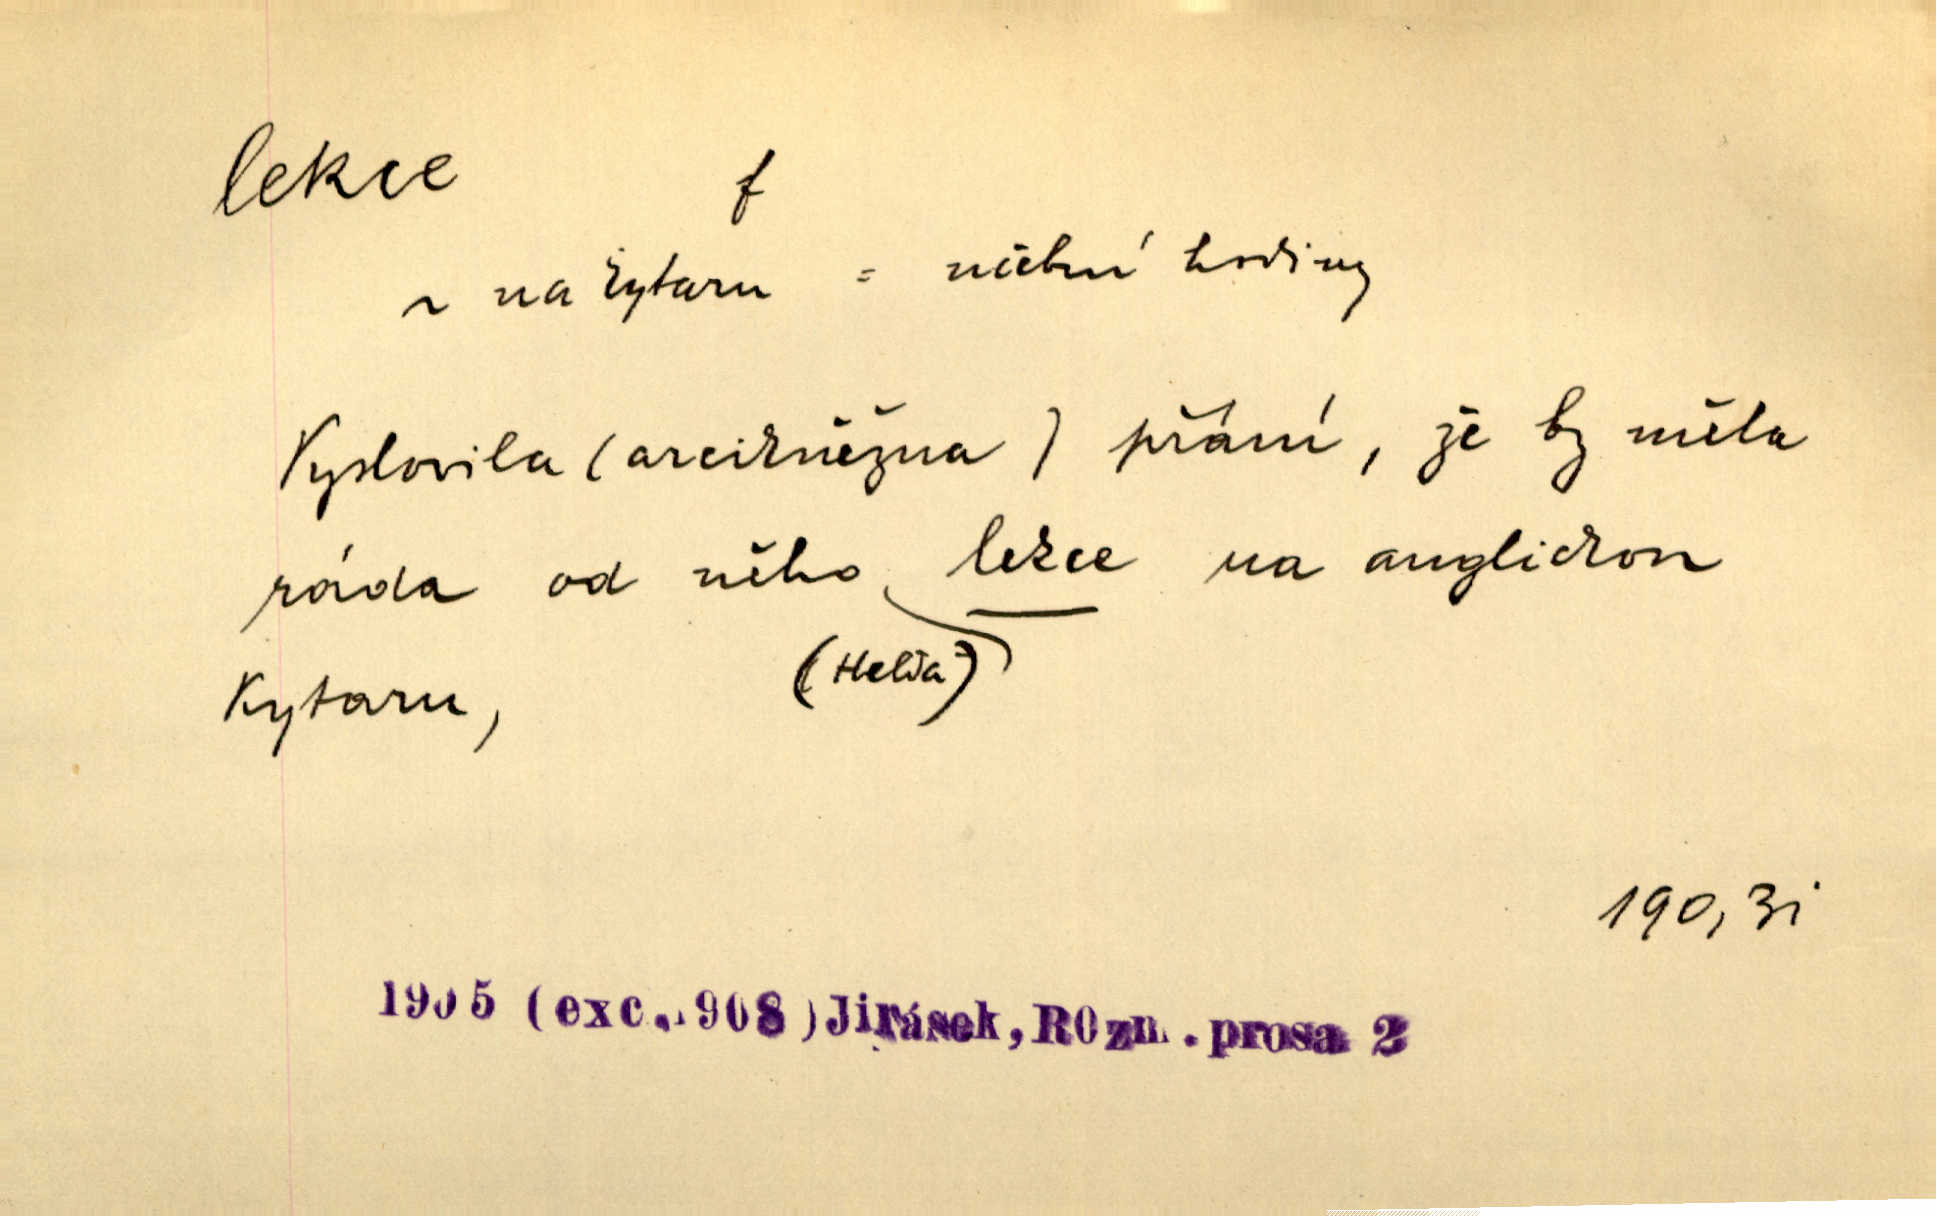 lekce f
~ na kytaru = učební hodiny
Vyslovila (arcikněžna) přání, že by měla
ráda od něho lekce na anglickou
(Helda)
kytaru,
190, 3i
1905 (exc. 908) Jirásek, ROzm. prosa 2